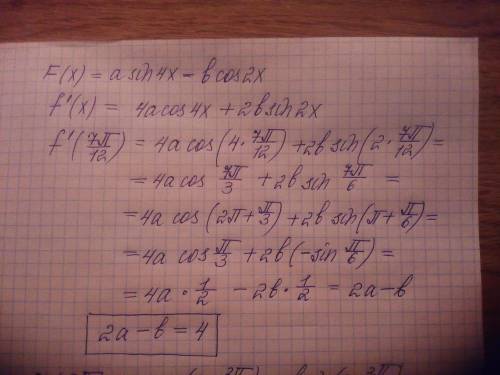 F(x) = a sin4x − b cos2x
f'(x) = 4a cos4x + 2b sin2x
f'(7π/12) = 4a cos(4·7π/12) + 2b sin(2·7π/12) =
= 4a cos 7π/3 + 2b sin 7π/6 =
= 4a cos(2π + π/3) + 2b sin(π + π/6) =
= 4a cos π/3 + 2b(−sin π/6) =
= 4a · 1/2 − 2b · 1/2 = 2a − b
2a − b = 4